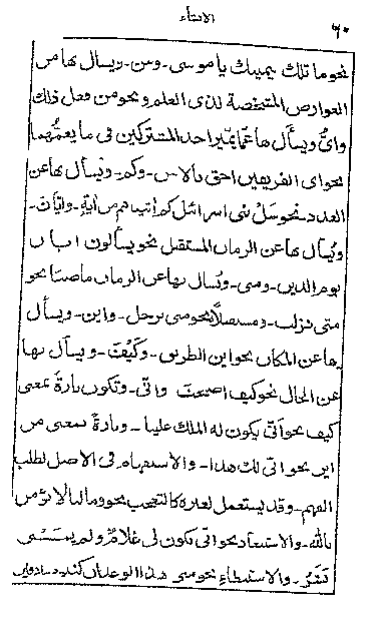 الانشاء
٦٠
نحو ما تلك بيمينك يا موسى - ومن - ويسأل بها من
العوارض المشخصة لذى العلم نحو من فعل ذلك
واىّ ويسأل بها عمّا يميّز احد المشتركين فى ما يعمّهما
نحو اى الفريقين احق بالامن - وكم - ويسأل بها عن
العدد - نحو سل بنى اسرائيل كم اتيناهم من آية - وايّان -
ويُسأل بها عن الزمان المستقبل نحو يسألون ايان
يوم الدين - ومتى - ويُسال بها عن الزمان ماضيا نحو
متى نزلت - ومستقبلاً نحو متى نرحل - واين - ويسأل
بها عن المكان نحو اين الطريق - وكَيْفَ - ويسأل بها
عن الحال نحو كيف اصبحت وانّى - وتكون بارة بمعنى
كيف نحو انّى يكون له الملك علينا - وبارة بمعنى من
اين نحو انى لك هذا - والاستفهام فى الاصل لطلب
الفهم - وقد يستعمل لغيره كالتعجب نحو وما لنا لا نؤمن
بالله - والاستبعاد نحو انّى يكون لى غلامٌ ولم يمسسنى
بَشَرٌ - والاستبطاء نحو متى هذا الوعد ان كنتم صادقين